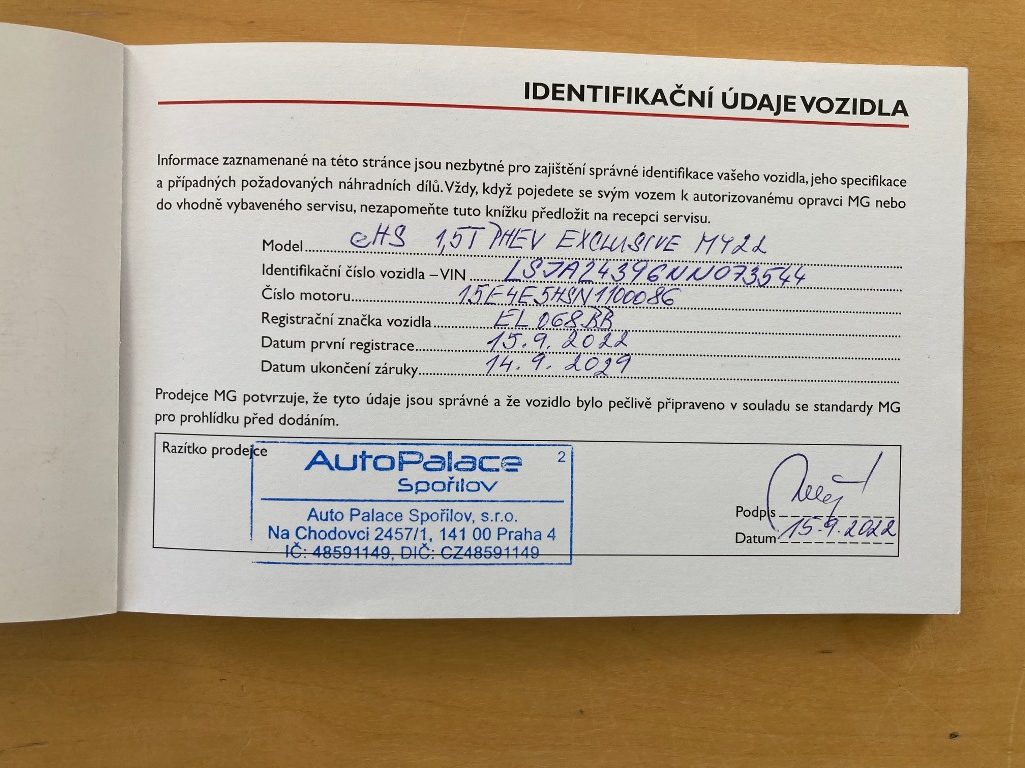 IDENTIFIKAČNÍ ÚDAJE VOZIDLA
Informace zaznamenané na této stránce jsou nezbytné pro zajištění správné identifikace vašeho vozidla, jeho specifikace
a případných požadovaných náhradních dílů. Vždy, když pojedete se svým vozem k autorizovanému opravci MG nebo
do vhodně vybaveného servisu, nezapomeňte tuto knížku předložit na recepci servisu.
Model eHS 1,5T PHEV EXCLUSIVE MY22
Identifikační číslo vozidla – VIN LSJA24396NN073544
Číslo motoru 15E4E5HSN1100086
Registrační značka vozidla EL068BB
Datum první registrace 15.9.2022
Datum ukončení záruky 14.9.2029
Prodejce MG potvrzuje, že tyto údaje jsou správné a že vozidlo bylo pečlivě připraveno v souladu se standardy MG
pro prohlídku před dodáním.
Razítko prodejce
AutoPalace 2
Spořilov
Auto Palace Spořilov, s.r.o.
Na Chodovci 2457/1, 141 00 Praha 4
IČ: 48591149, DIČ: CZ48591149
Podpis
Datum 15.9.2022